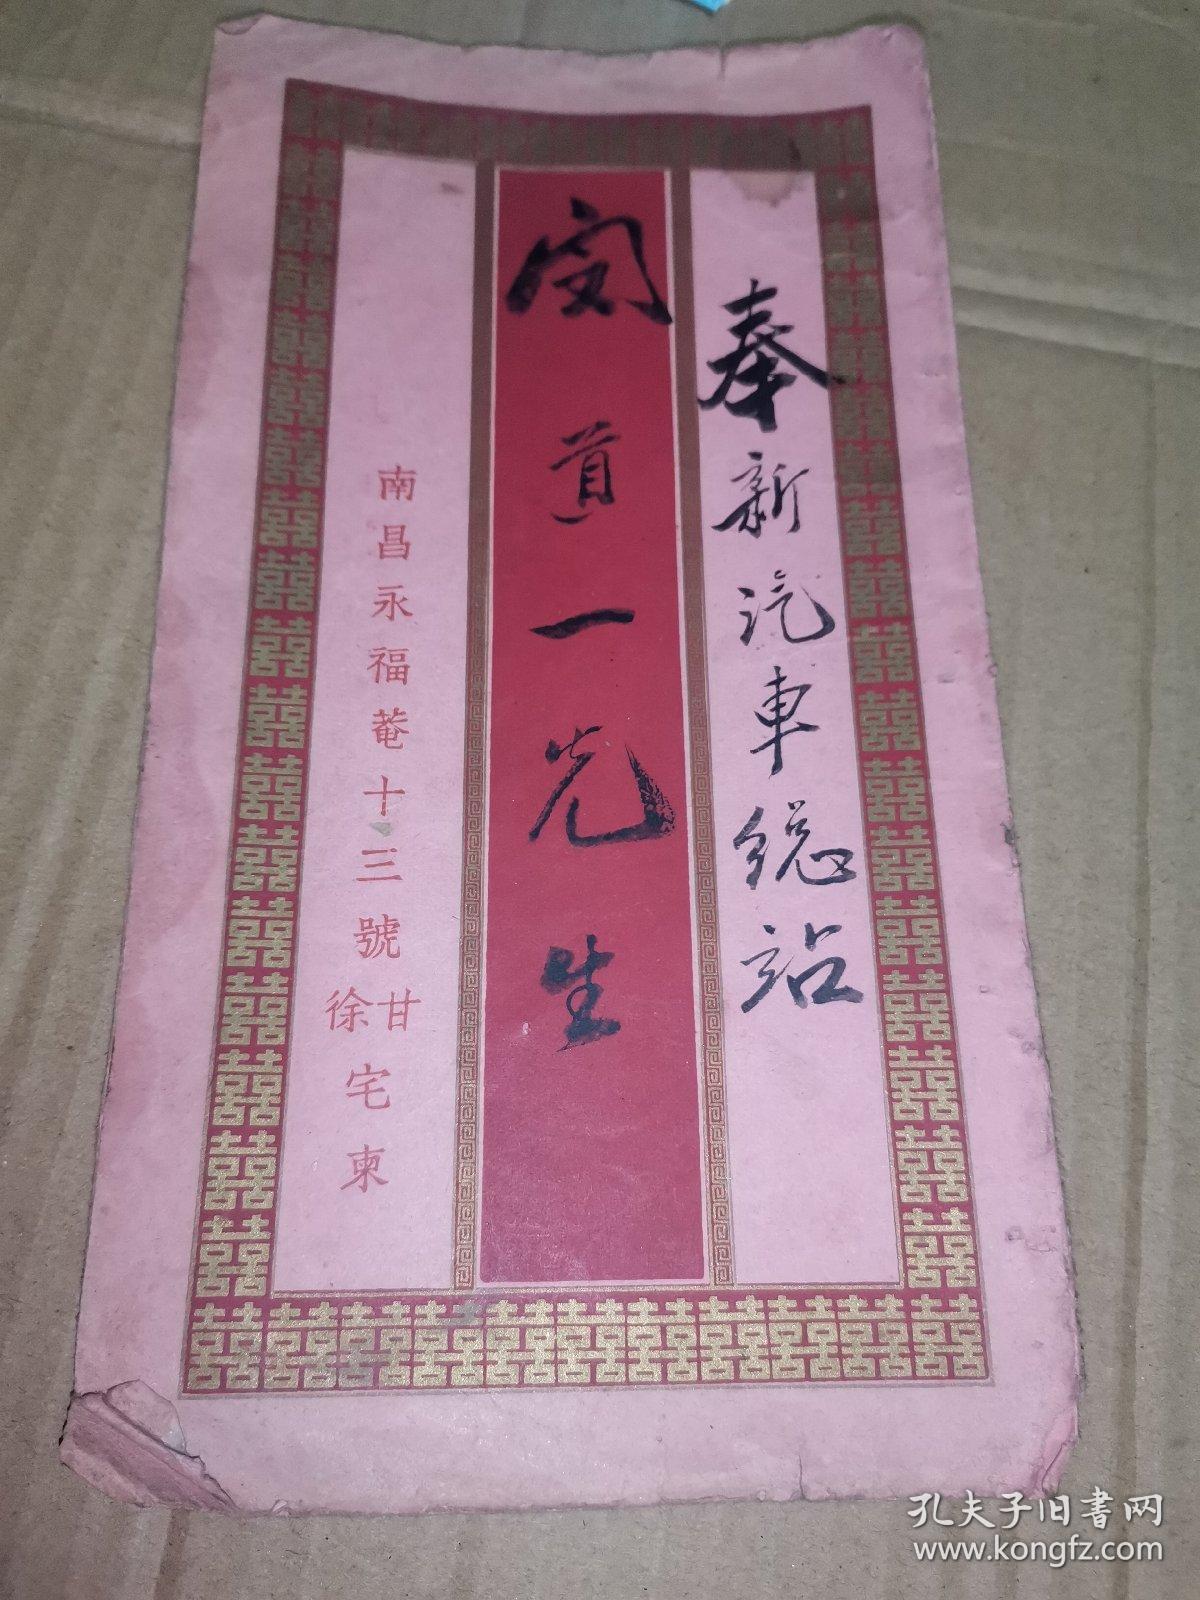 奉新汽車總站
閔道一先生
南昌永福菴十三號甘徐宅柬
孔夫子旧书网
www.kongfz.com